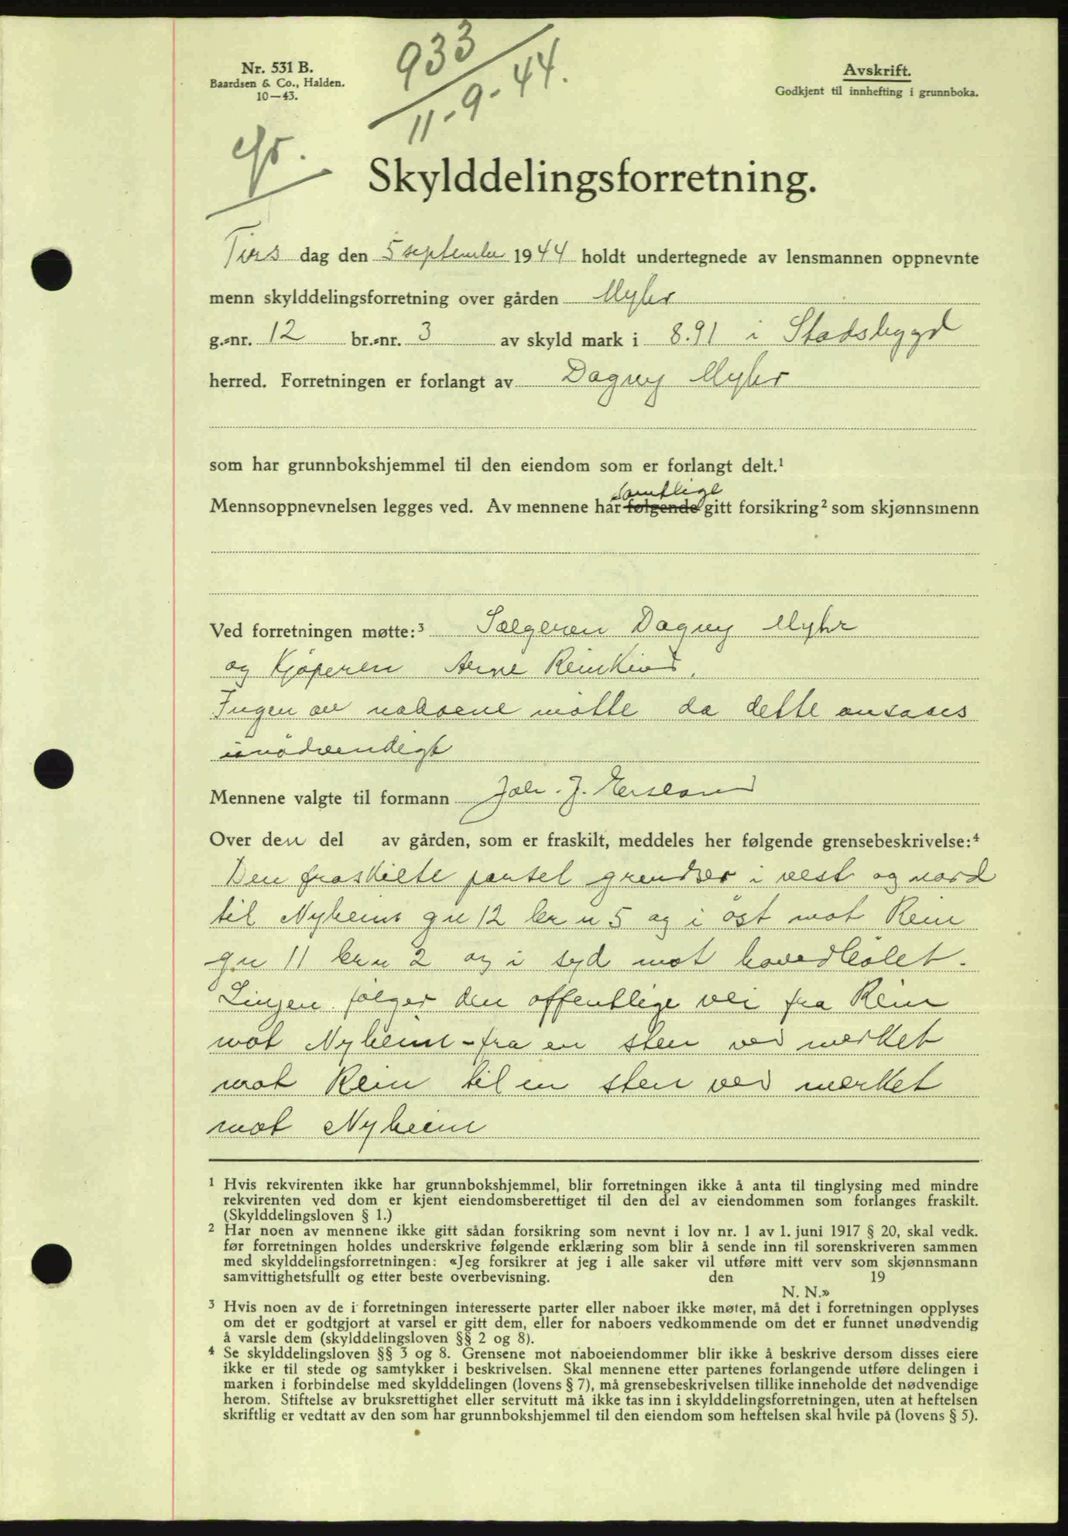 Nr. 531 B.
Baardsen & Co., Halden.
10—43.
933
11-9-44.
Avskrift.
Godkjent til innhefting i grunnboka.
Skylddelingsforretning.
Tirs dag den 5 september 1944 holdt undertegnede av lensmannen oppnevnte
menn skylddelingsforretning over gården Myhr
g.-nr. 12 br.-nr. 3 av skyld mark i 8.91 i Stadsbygd
herred. Forretningen er forlangt av Dagny Myhr
som har grunnbokshjemmel til den eiendom som er forlangt delt.¹
samtlige
Mennsoppnevnelsen legges ved. Av mennene har følgende gitt forsikring² som skjønnsmenn
Ved forretningen møtte:³ Sælgeren Dagny Myhr
og Kjøperen Arne Reinkind.
Ingen av naboene møtte da dette ansaaes
unødvendigt
Mennene valgte til formann Joh. J.
Over den del av gården, som er fraskilt, meddeles her følgende grensebeskrivelse:⁴
Den fraskilte parsel grendser i vest og nord
til Nyheim gn 12 br n 5 og i øst mot Rein
gn 11 br n 2 og i syd mot hovedbølet.
Linjen følger den offentlige vei fra Rein
mot Nyheim - fra en sten ved merket
mot Rein til en sten ved merket
mot Nyheim
¹ Hvis rekvirenten ikke har grunnbokshjemmel, blir forretningen ikke å anta til tinglysing med mindre
rekvirenten ved dom er kjent eiendomsberettiget til den del av eiendommen som forlanges fraskilt.
(Skylddelingsloven § 1.)
² Har noen av mennene ikke gitt sådan forsikring som nevnt i lov nr. 1 av 1. juni 1917 § 20, skal vedk.
før forretningen holdes underskrive følgende erklæring som blir å sende inn til sorenskriveren sammen
med skylddelingsforretningen: «Jeg forsikrer at jeg i alle saker vil utføre mitt verv som skjønnsmann
samvittighetsfullt og etter beste overbevisning. den 19
N. N.»
³ Hvis noen av de i forretningen interesserte parter eller naboer ikke møter, må det i forretningen opplyses
om det er godtgjort at varsel er gitt dem, eller for naboers vedkommende om det er funnet unødvendig
å varsle dem (skylddelingsloven §§ 2 og 8).
⁴ Se skylddelingsloven §§ 3 og 8. Grensene mot naboeiendommer blir ikke å beskrive dersom disses eiere
ikke er til stede og samtykker i beskrivelsen. Skal mennene etter partenes forlangende utføre delingen i
marken i forbindelse med skylddelingen (lovens § 7), må grensebeskrivelsen tillike inneholde det nødvendige
herom. Stiftelse av bruksrettighet eller servitutt må ikke tas inn i skylddelingsforretningen, uten at heftelsen
skriftlig er vedtatt av den som har grunnbokshjemmel til den eiendom som heftelsen skal hvile på (lovens § 5).